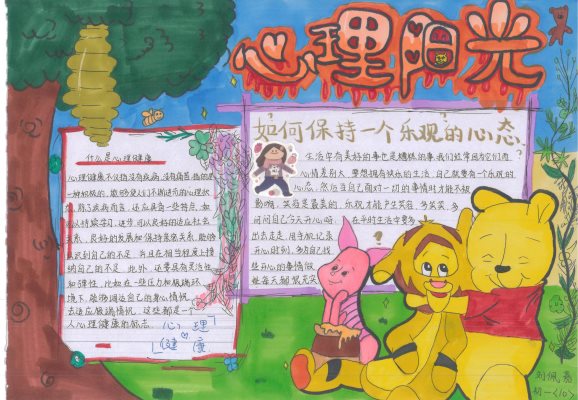 心理阳光
如何保持一个乐观的心态
什么是心理健康
心理健康不仅指没有疾病,没有痛苦,指的是
一种积极的,能够使人们不断进步的心理状
态,除了疾病而言,还应具备一些特点,如
可以持续学习,进步,可以良好的适应社会
关系,良好的发展和保持亲密关系,能够
认识到自己的不足,并且在相当程度上接
纳自己的不足,此外,还要具有灵活性
和弹性,比如在一些压力和极端环
境下,能够调适自己的身心情况,
去适应极端情况,这些都是一个
人心理健康的标志。
心理
健康
生活中有美好的事也是糟糕的事,我们经常因为它们而
心情差别大,要想拥有快乐的生活,自己就要有个乐观的
心态,然后当自己面对一切的事情时才能不被
影响,笑容是最美的,乐观才能产生笑容,多笑笑,多
问问自己今天开心吗
在平时生活中要多
出去走走,用手机记录
开心时刻,多为自己找
些开心的事情做,
每天都
?
刘佩
初一<10>